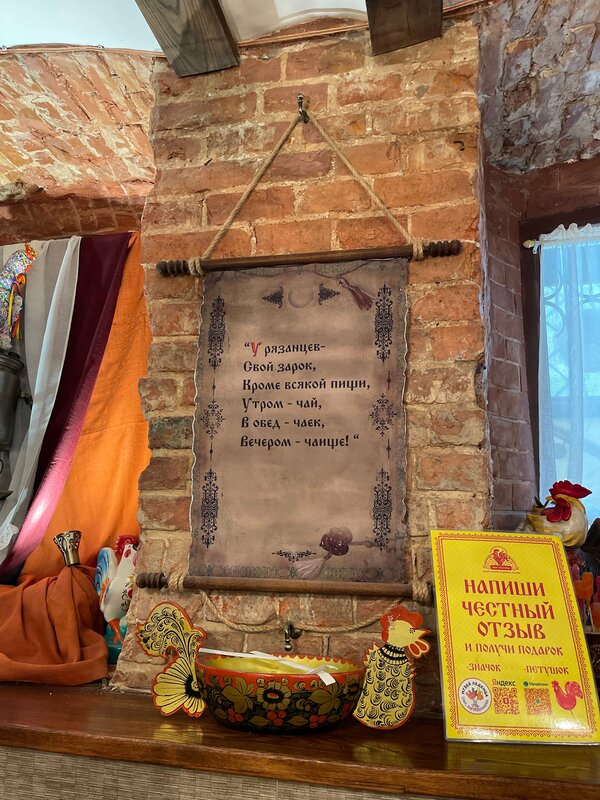 “У рязанцев-
Свой зарок,
Кроме всякой пищи,
Утром - чай,
В обед - чаек,
Вечером - чаище! “
НАПИШИ
ЧЕСТНЫЙ
ОТЗЫВ
И ПОЛУЧИ ПОДАРОК
-ЗНАЧОК
-ПЕТУШОК
Яндекс
Tripadvisor